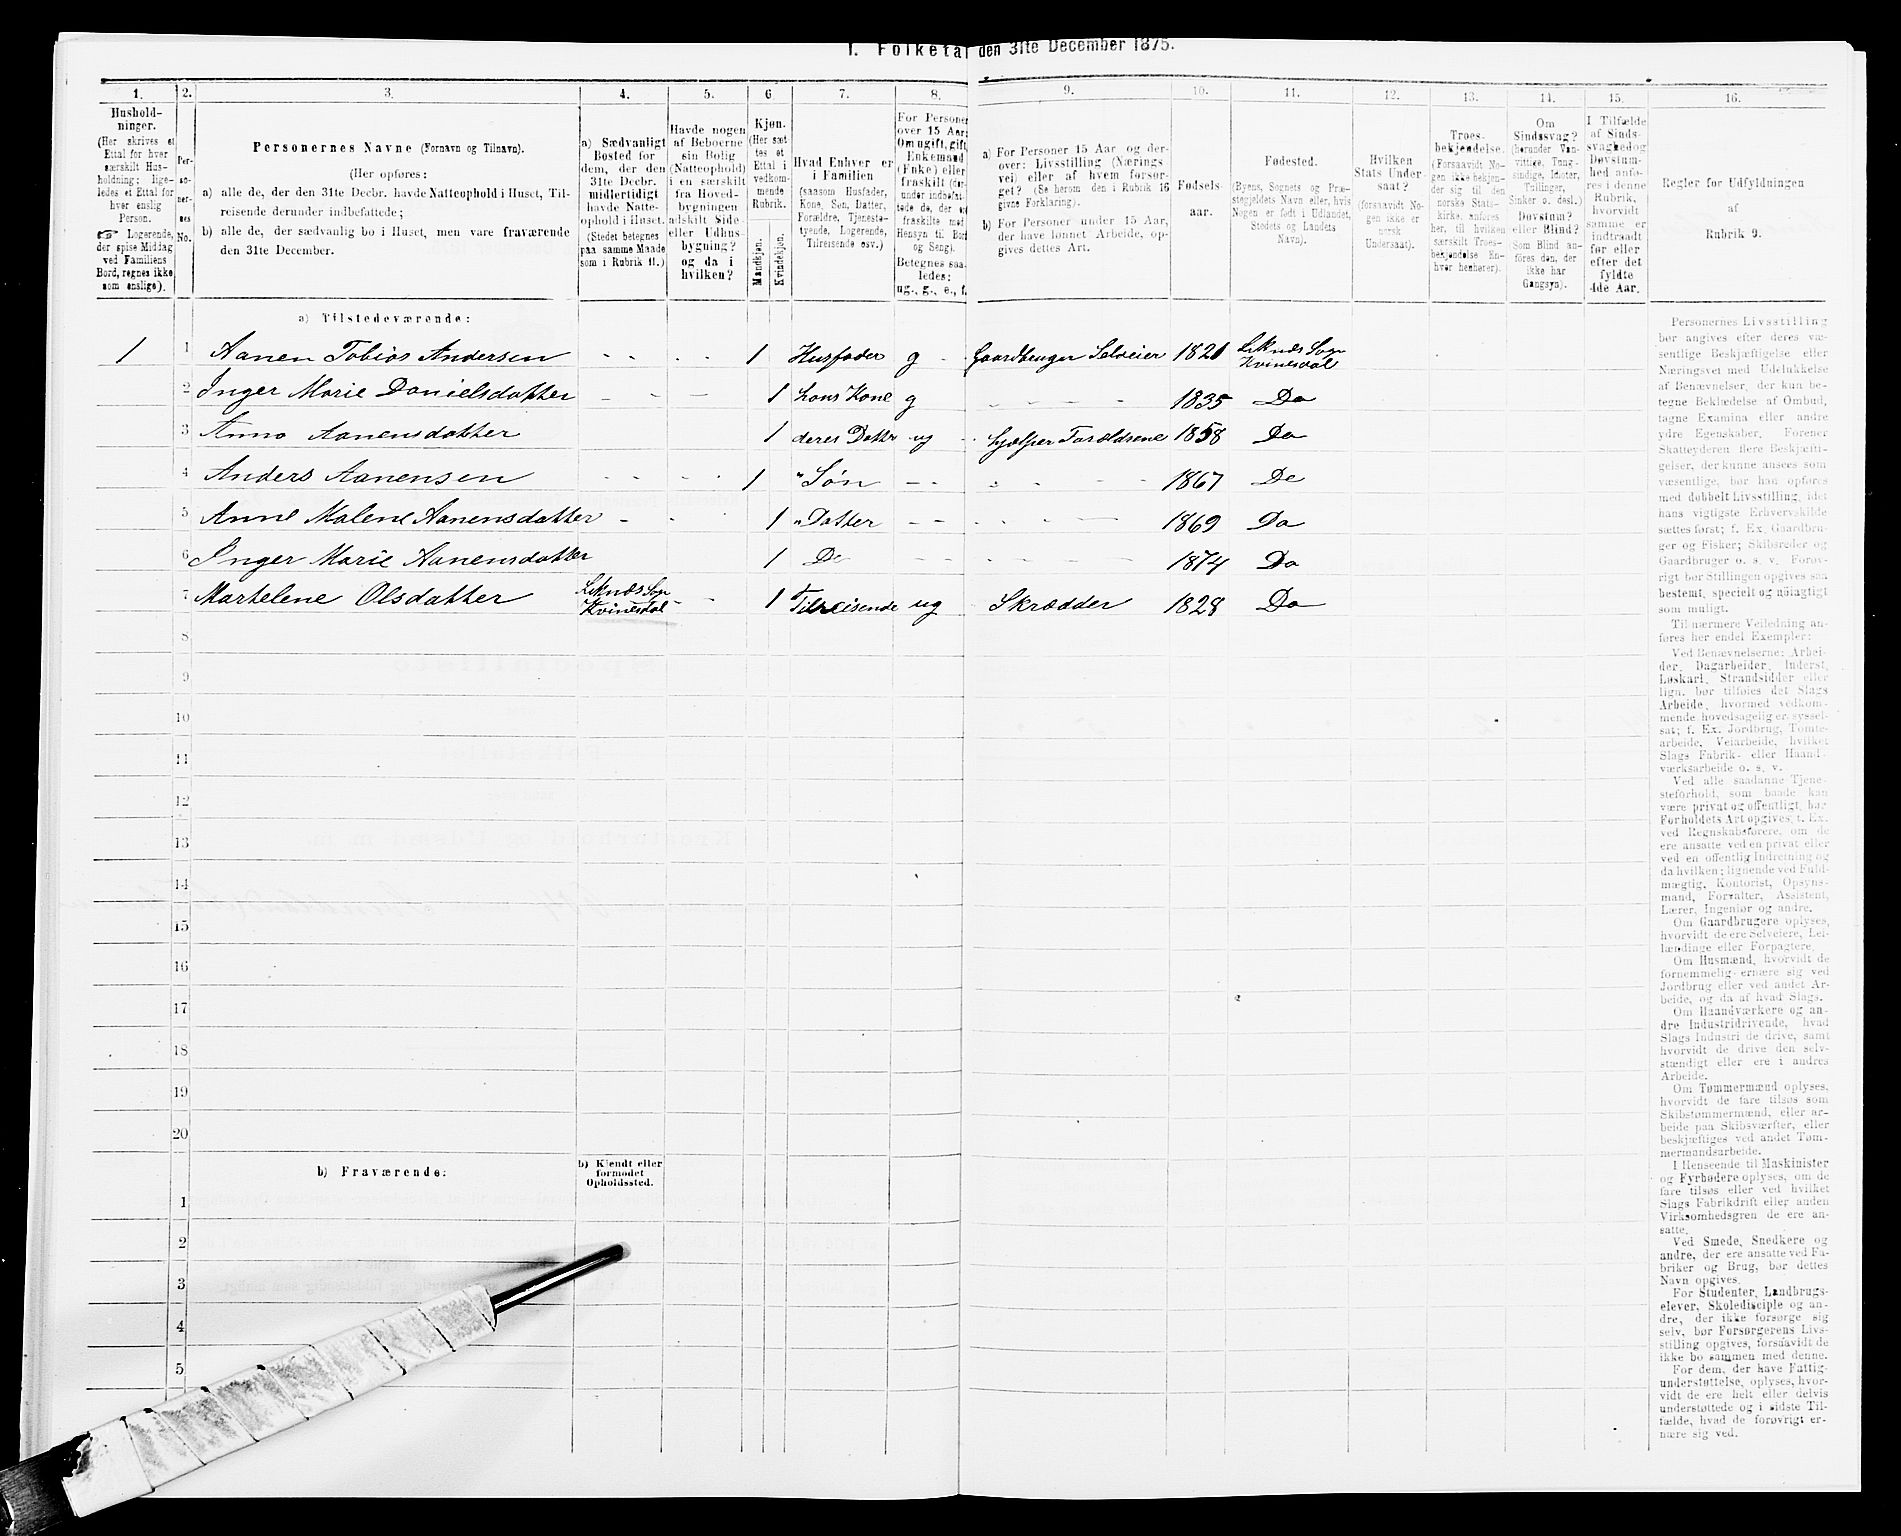 I. Folketal den 31te December 1875.
1. 2. 3. 4. 5. 6 7. 8. 9. 10. 11. 12. 13. 14. 15. 16.
Hushold-
ninger.
(Her skrives et
Ettal for hver
særskilt Hus-
holdning; lige-
ledes et Ettal for
hver enslig
Person.
☞ Logerende,
der spise Middag
ved Familiens
Bord, regnes ikke
som enslige).
Per-
so-
ner-
nes
No.
Personernes Navne (Fornavn og Tilnavn).
(Her opføres:
a) alle de, der den 31te Decbr. havde Natteophold i Huset, Til-
reisende derunder indbefattede;
b) alle de, der sædvanlig bo i Huset, men vare fraværende
den 31te December.
a) Sædvanligt
Bosted for
dem, der den
31te Decbr.
midlertidigt
havde Natte-
ophold i Huset.
(Stedet betegnes
paa samme Maade
som i Rubrik 11.)
Havde nogen
af Beboerne
sin Bolig
(Natteophold)
i en særskilt
fra Hoved-
bygningen
adskilt Side-
eller Udhus-
bygning?
og da i
hvilken?
Kjøn.
(Her sæt-
tes et
Ettal i
vedkom-
mende
Rubrik.
Mandkjøn.
Kvindekjøn.
Hvad Enhver er
i Familien
(saasom Husfader,
Kone, Søn, Datter,
Forældre, Tjeneste-
tyende, Logerende,
Tilreisende osv.)
For Personer
over 15 Aar:
Om ugift, gift,
Enkemand
(Enke) eller
fraskilt (der-
under indbefat-
tede de, der ere
fraskilte med
Hensyn til Bord
og Seng).
Betegnes saa-
ledes:
ug., g., e., f.
a) For Personer 15 Aar og der-
over: Livsstilling (Nærings-
vei) eller af hvem forsør-
get? (Se herom den i Rubrik 16
givne Forklaring).
b) For Personer under 15 Aar,
der have lønnet Arbeide, op-
gives dettes Art.
Fødsels-
aar.
Fødested.
(Byens, Sognets og Præ-
stegjeldets Navn eller, hvis
Nogen er født i Udlandet,
Stedets og Landets
Navn).
Hvilken
Stats Under-
saat?
(forsaavidt No-
gen ikke er
norsk
Undersaat).
Troes-
bekjendelse.
(Forsaavidt No-
gen ikke bekjen-
der sig til den
norske Stats-
kirke, anføres
her, til hvilken
særskilt Troes-
bekjendelse En-
hver henhører).
Om
Sindssvag?
(herunder Van-
vittige, Tung-
sindige, Idioter,
Tullinger,
Sinker o. desl.)
Døvstum?
eller Blind?
(Som Blind an-
føres den, der
ikke har
Gangsyn).
I Tilfælde
af Sinds-
svaghed og
Døvstum-
hed anfø-
res i denne
Rubrik,
hvorvidt
samme er
indtraadt
før eller
efter det
fyldte
4de Aar.
Regler for Udfyldningen
af
Rubrik 9.
a) Tilstedeværende:
1 1 Aanen Tobias Andersen 1 Husfader g Gaardbruger Selveier 1821 Liknæs Sogn Kvinesdal
2 Inger Marie Danielsdatter 1 hans Kone g 1835 Do
3 Anna Aanensdatter 1 deres Dattr ug hjælper Foreldrene 1858 Do
4 Anders Aanensen 1 " Søn 1867 Do
5 Anne Malene Aanensdatter 1 " Datter 1869 Do
6 Inger Marie Aanensdatter 1 Do 1874 Do
7 Martelene Olsdatter Liknæs Sogn Kvinesdal 1 Tilreisende ug Skrædder 1828 Do
8
9
10
11
12
13
14
15
16
17
18
19
20
b) Fraværende:
b) Kjendt eller
formodet
Opholdssted.
1
2
3
4
5
Personernes Livsstilling
bør angives efter deres væ-
sentlige Beskjæftigelse eller
Næringsvei med Udelukkelse
af Benævnelser, der kun be-
tegne Beklædelse af Ombud,
tagne Examina eller andre
ydre Egenskaber. Forener
Skatteyderen flere Beskjæfti-
gelser, der kunne ansees som
væsentlige, bør han opføres
med dobbelt Livsstilling, idet
hans vigtigste Erhvervskilde
sættes først; f. Ex. Gaardbru-
ger og Fisker; Skibsreder og
Gaardbruger o. s. v. Forøv-
rigt bør Stillingen opgives saa
bestemt, specielt og nøiagtigt
som muligt.
Til nærmere Veiledning an-
føres her endel Exempler:
Ved Benævnelserne: Arbei-
der, Dagarbeider, Inderst,
Løskarl, Strandsidder eller
lign. bør tilføies det Slags
Arbeide, hvormed vedkom-
mende hovedsagelig er syssel-
sat; f. Ex. Jordbrug, Tømte-
arbeide, Veiarbeide, hvilket
Slags Fabrik- eller Haand-
værksarbeide o. s. v.
Ved alle saadanne Tjene-
steforhold, som baade kan
være privat og offentligt, bør
Forholdets Art opgives, f. Ex.
ved Regnskabsførere, om de
ere ansatte ved en privat eller
ved en offentlig Indretning og
da hvilken; lignende ved Fuld-
mægtig, Kontorist, Opsyns-
mand, Forvalter, Assistent,
Lærer, Ingeniør og andre.
Om Gaardbrugere oplyses,
hvorvidt de ere Selveiere, Lei-
lændinge eller Forpagtere.
Om Husmænd, hvorvidt de
fornemmelig ernære sig ved
Jordbrug eller ved andet Ar-
beide, og da af hvad Slags.
Om Haandværkere og an-
dre Industridrivende, hvad
Slags Industri de drive, samt
hvorvidt de drive den selv-
stændigt eller ere i andres
Arbeide.
Om Tømmermænd oplyses,
hvorvidt de fare tilsøs som
Skibstømmermænd, eller ar-
beide paa Skibsværfter, eller
beskjæftiges ved andet Tøm-
mermandsarbeide.
I Henseende til Maskinister
og Fyrbødere oplyses, om de
fare tilsøs eller ved hvilket
Slags Fabrikdrift eller anden
Virksomhedsgren de ere an-
satte.
Ved Smede, Snedkere og
andre, der ere ansatte ved Fa-
briker og Brug, bør dettes
Navn opgives.
For Studenter, Landbrugs-
elever, Skoledisciple og an-
dre, der ikke forsørge sig
selv, bør Forsørgerens Livs-
stilling opgives, forsaavidt de
ikke bo sammen med denne.
For dem, der have Fattig-
understøttelse, oplyses, hvor-
vidt de ere helt eller delvis
understøttede og i sidste Til-
fælde, hvad de forøvrigt er-
nære sig ved.